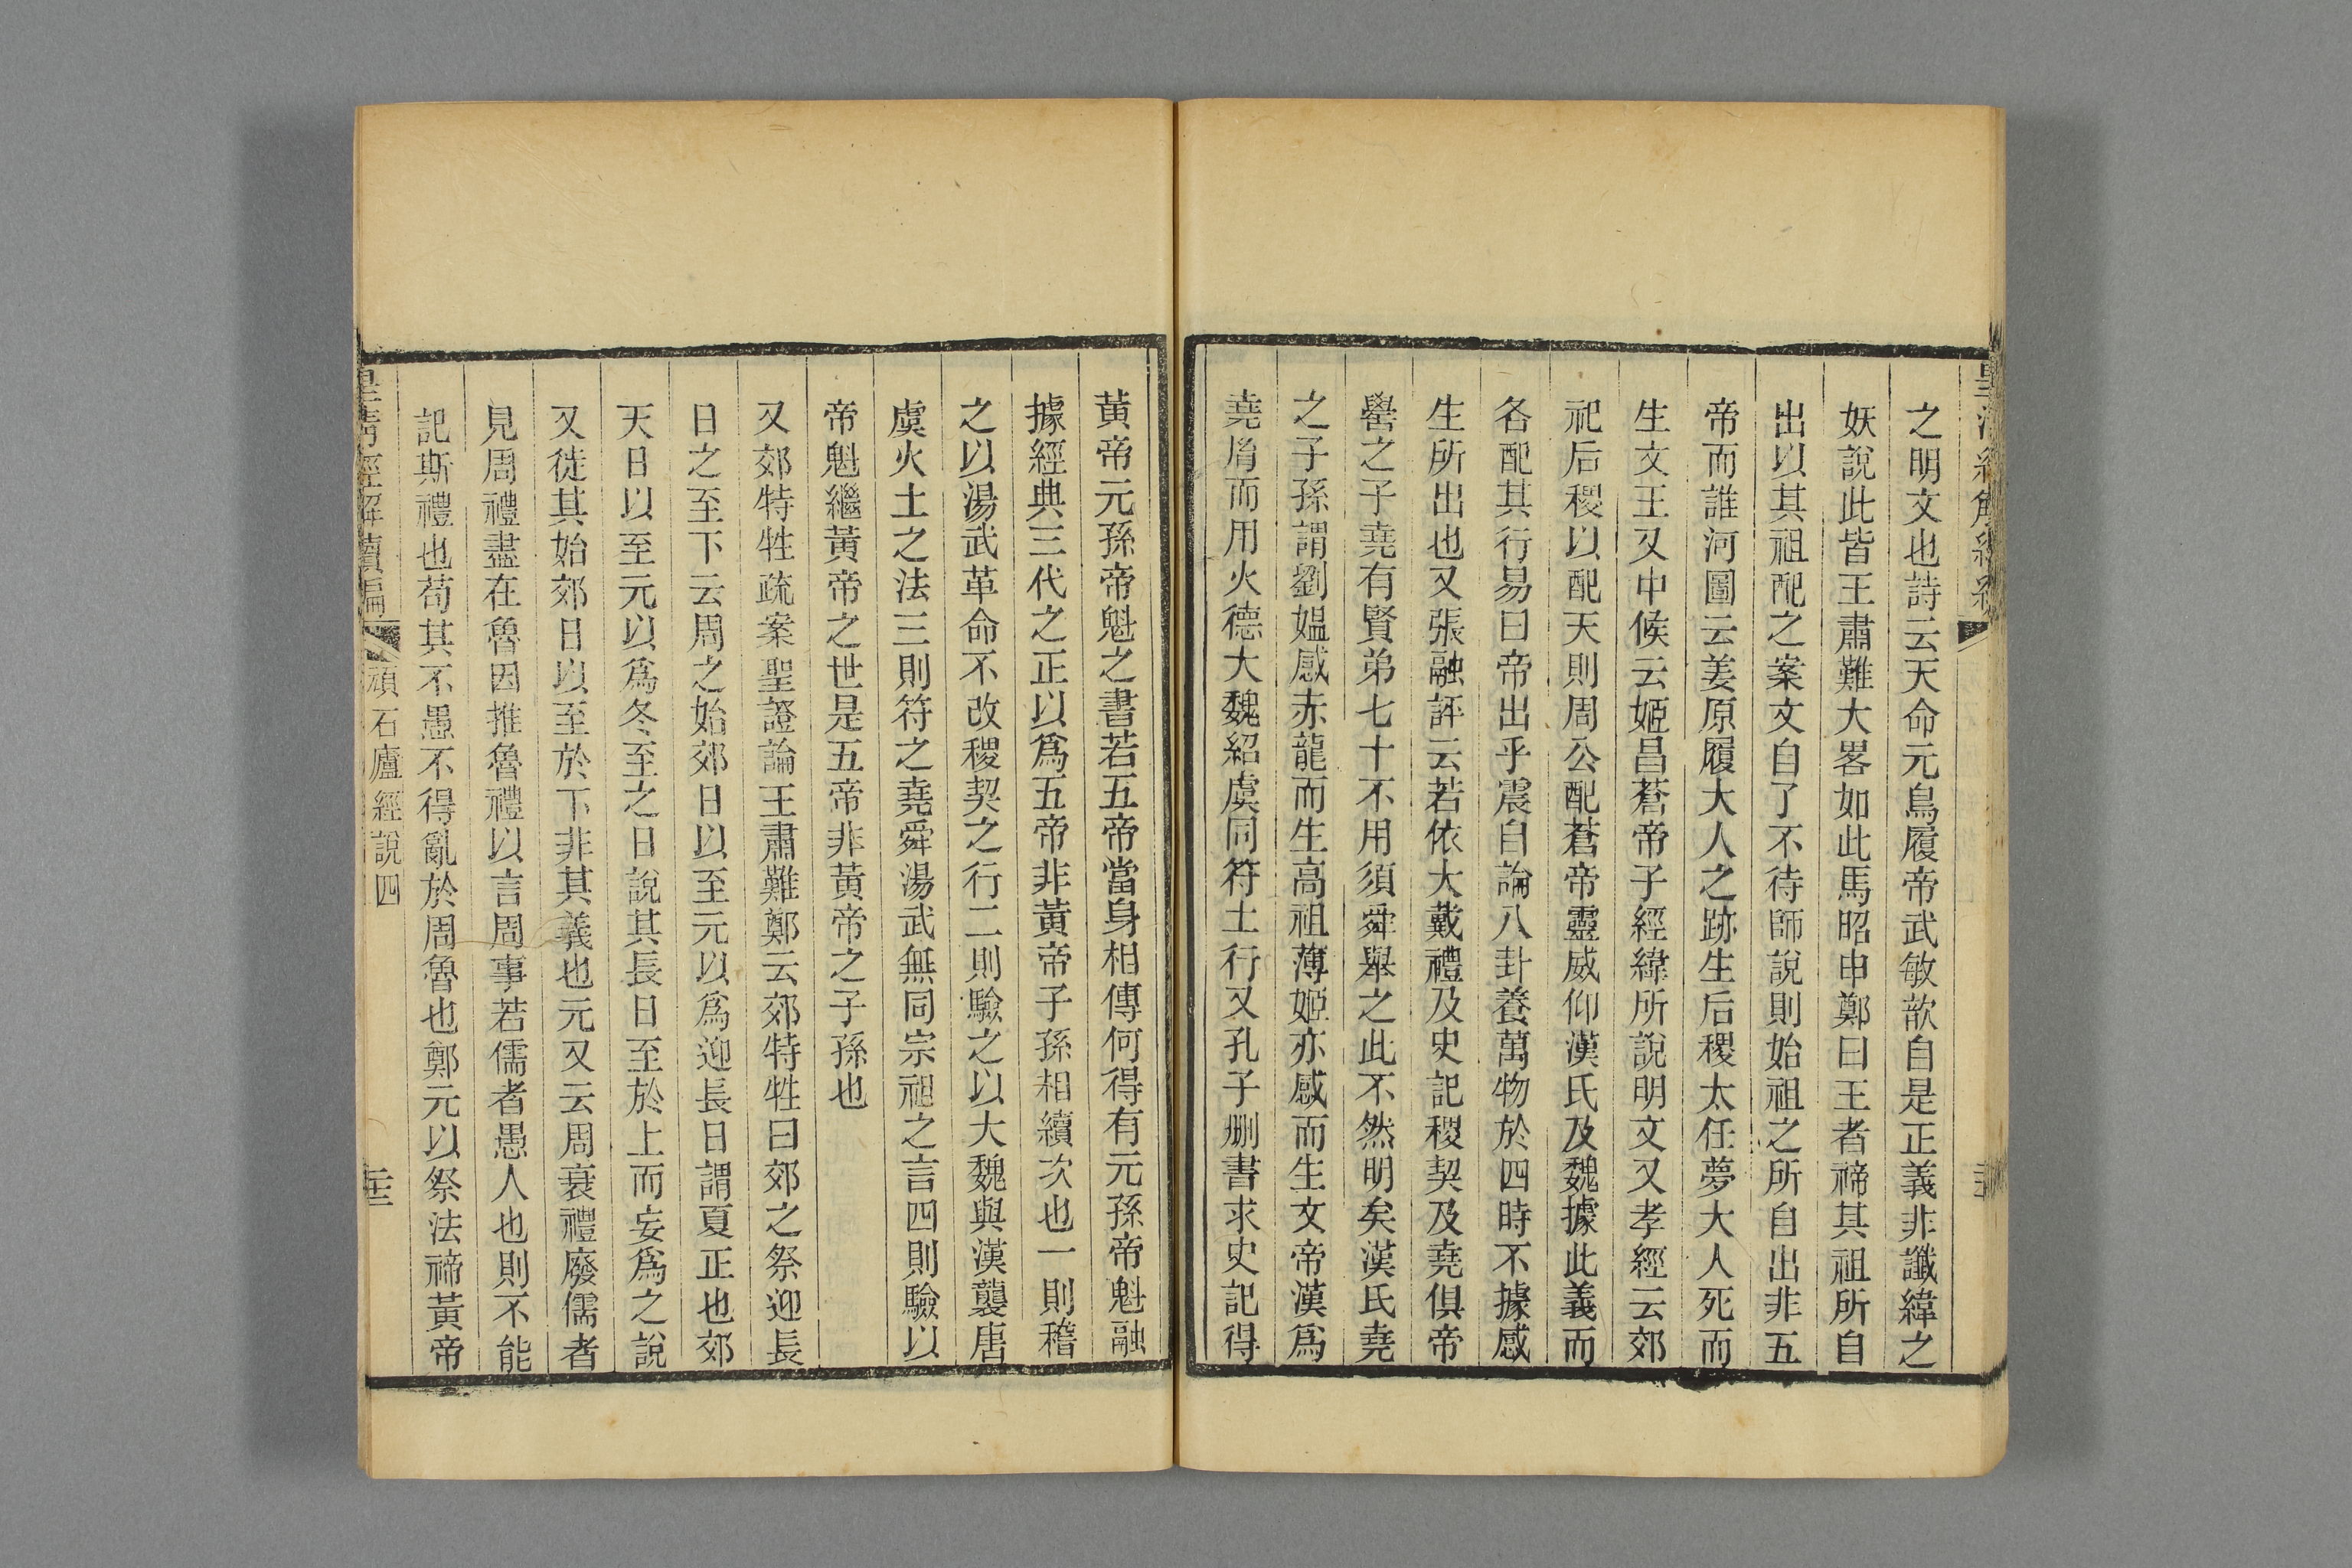 之明文也詩云天命元鳥履帝武敏歆自是正義非讖緯之
妖說此皆王肅難大畧如此馬昭申鄭曰王者禘其祖所自
出以其祖配之案文自了不待師說則始祖之所自出非五
帝而誰河圖云姜原履大人之跡生后稷太任夢大人死而
生文王又中候云姬昌蒼帝子經緯所說明文又孝經云郊
祀后稷以配天則周公配蒼帝靈威仰漢氏及魏據此義而
各配其行易曰帝出乎震自論八卦養萬物於四時不據感
生所出也又張融評云若依大戴禮及史記稷契及堯俱帝
嚳之子堯有賢弟七十不用須舜舉之此不然明矣漢氏堯
之子孫謂劉媼感赤龍而生高祖薄姬亦感而生文帝漢爲
堯胤而用火德大魏紹虞同符土行又孔子刪書求史記得
黃帝元孫帝魁之書若五帝當身相傳何得有元孫帝魁融
據經典三代之正以爲五帝非黃帝子孫相續次也一則稽
之以湯武革命不改稷契之行二則驗之以大魏與漢襲唐
虞火土之法三則符之堯舜湯武無同宗祖之言四則驗以
帝魁繼黃帝之世是五帝非黃帝之子孫也
又郊特牲疏案聖證論王肅難鄭云郊特牲曰郊之祭迎長
日之至下云周之始郊日以至元以爲迎長日謂夏正也郊
天日以至元以爲冬至之日說其長日至於上而妄爲之說
又徒其始郊日以至於下非其義也元又云周衰禮廢儒者
見周禮盡在魯因推魯禮以言周事若儒者愚人也則不能
記斯禮也苟其不愚不得亂於周魯也鄭元以祭法禘黃帝
皇清經解續編 頑石廬經說四